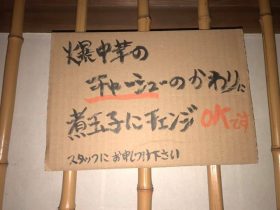 爆中華の
チャーシューのかわりに
煮玉子にチェンジOKです
スタッフにお申しつけ下さい